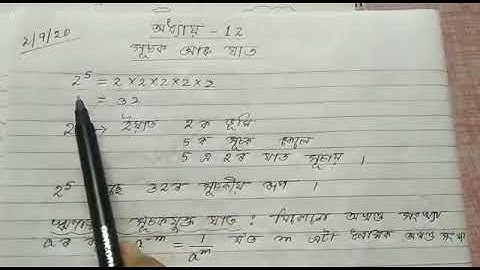 2/9/20
অধ্যায় - 12
সূচক আৰু ঘাত
2⁵ = 2 × 2 × 2 × 2 × 2
= 32
→ ইয়াত 2 ক ভূমি
5 ক সূচক বোলে
5 এ 2ৰ ঘাত সূচায় ।
2⁵ হৈছে 32ৰ সূচকীয় ৰূপ ।
সূচকযুক্ত ঘাত : যিকোনো অখণ্ড সংখ্যা
a ৰ a⁻ᵐ = 1/aᵐ য'ত m এটা ধনাত্মক অখণ্ড সংখ্যা